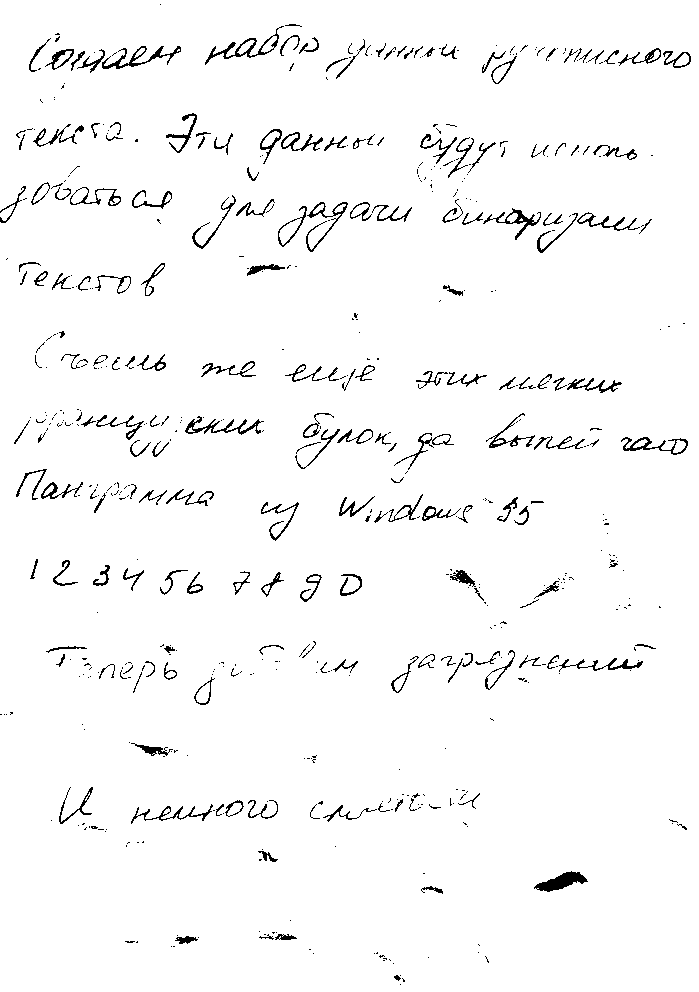 Создаем набор данных рукописного
текста. Эти данные будут исполь
зоваться для задачи бинаризации
текстов
Съешь же ещё этих мягких
французских булок, да выпей чаю
Панграмма из Windows 95
1 2 3 4 5 6 7 8 9 0
Теперь добавим загрязнений
И немного сметаны